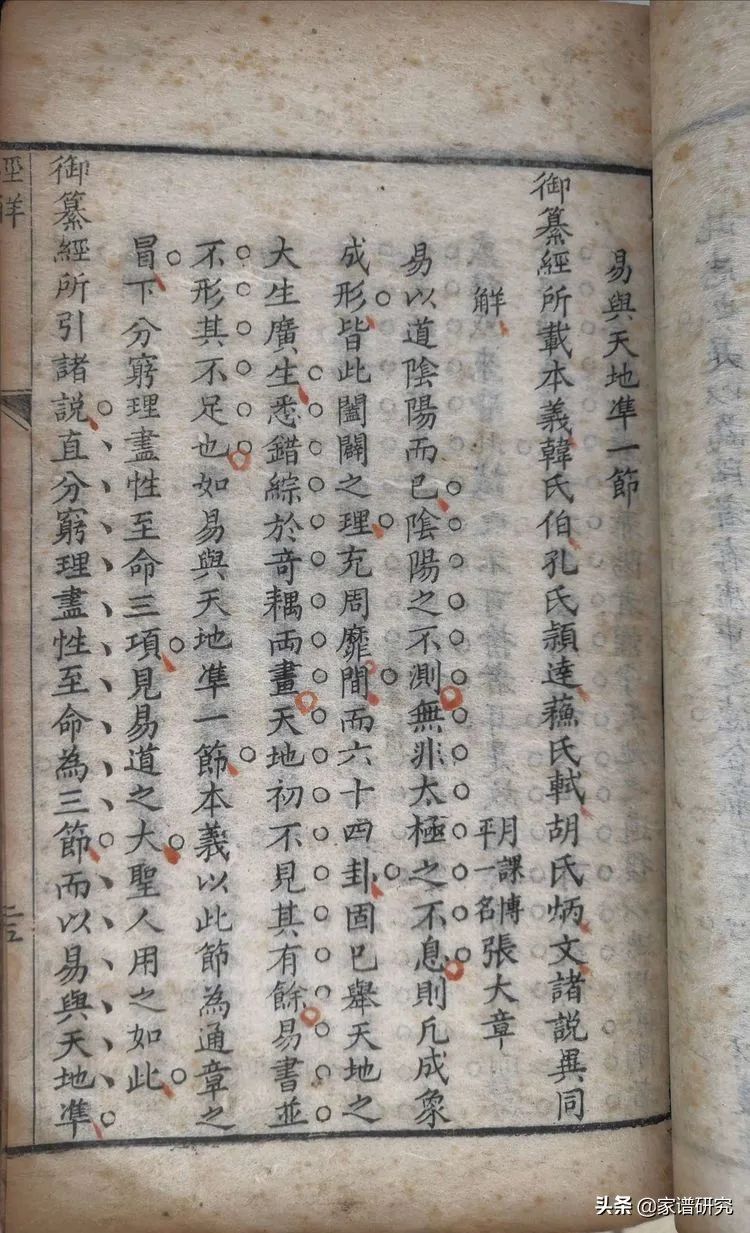 易與天地準一節
御纂經所載本義韓氏伯孔氏頴達蘓氏軾胡氏炳文諸説異同
解
月課博
平一名
張大章
易以道陰陽而已陰陽之不測無非太極之不息則凡成象
成形皆此闔闢之理充周靡間而六十四卦固已舉天地之
大生廣生悉錯綜於奇耦兩畫天地初不見其有餘易書並
不形其不足也如易與天地準一節本義以此節為通章之
冒下分窮理盡性至命三項見易道之大聖人用之如此
御纂經所引諸説直分窮理盡性至命為三節而以易與天地準
頭条 @家谱研究